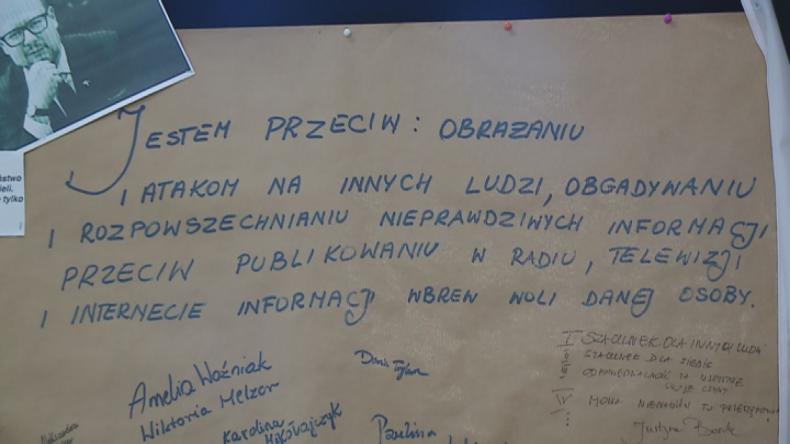 JESTEM PRZECIW: OBRAŻANIU
I ATAKOM NA INNYCH LUDZI, OBGADYWANIU
I ROZPOWSZECHNIANIU NIEPRAWDZIWYCH INFORMACJI
PRZECIW PUBLIKOWANIU W RADIU, TELEWIZJI
I INTERNECIE INFORMACJI WBREW WOLI DANEJ OSOBY.
Amelia Woźniak
Wiktoria Melzer
Karolina
Mikołajczyk
Paulina
SZACUNEK DLA INNYCH LUDZI
SZACUNEK DLA SIEBIE
ODPOWIEDZIALNOŚĆ ZA
MOWA NIENAWIŚCI TO
Justyna
ieli,
tylko